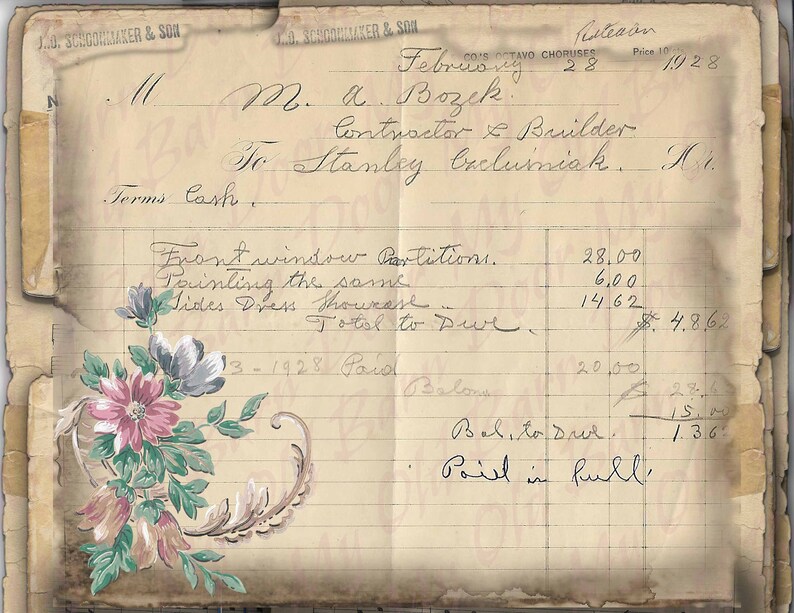 J.O. SCHOONMAKER & SON
J.O. SCHOONMAKER & SON
CO'S OCTAVO CHORUSES Price 10
February 28 1928
M M. A. Bozek.
Contractor & Builder
To Stanley
Terms Cash.
Front window Partitions. 28.00
Painting the same 6.00
Sides Dress Showcase .. 14 62
Totel to Due. $. 48.62
3-1928 Paid 20.00
$ 28.6
15.00
Bal. to Due. 13 6
Paid in full.